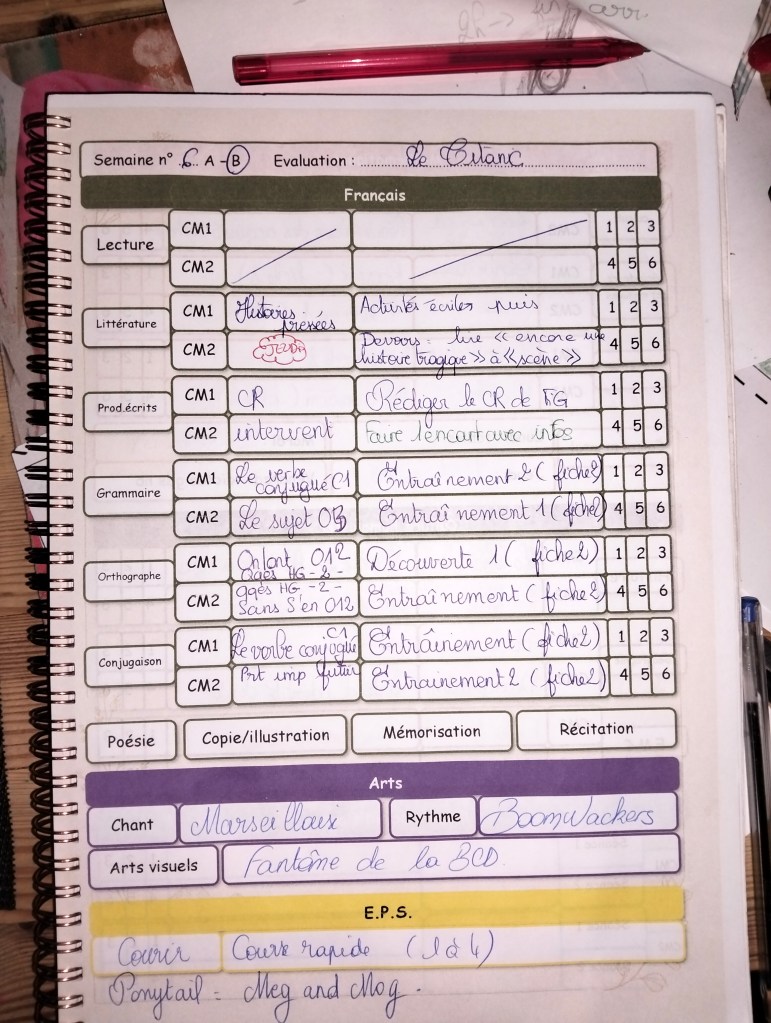 Semaine n° 6 A - B Evaluation : Le Titanic
Français
Lecture
CM1
1 2 3
CM2
4 5 6
Littérature
CM1 Histoires pressées Activités écrites puis 1 2 3
CM2 JEUDI Devoirs : lire « encore une histoire tragique » à « scène » 4 5 6
Prod.écrits
CM1 CR Rédiger le CR de FG 1 2 3
CM2 intervent Faire l'encart avec infos 4 5 6
Grammaire
CM1 Le verbe conjugué C1 Entraînement 2 (fiche2) 1 2 3
CM2 Le sujet Entraînement 1 (fiche2) 4 5 6
Orthographe
CM1 On/ont O12 Qqes HG - 2 - Découverte 1 (fiche2) 1 2 3
CM2 qqes HG - 2 - Sans S'en O12 Entraînement (fiche2) 4 5 6
Conjugaison
CM1 Le verbe conjugué C1 Entraînement (fiche2) 1 2 3
CM2 Prt imp futur Entrainement 2 (fiche2) 4 5 6
Poésie Copie/illustration Mémorisation Récitation
Arts
Chant Marseillaise Rythme BoomWackers
Arts visuels Fantôme de la BCD.
E.P.S.
Courir Course rapide (1 à 4)
Ponytail = Meg and Mog.